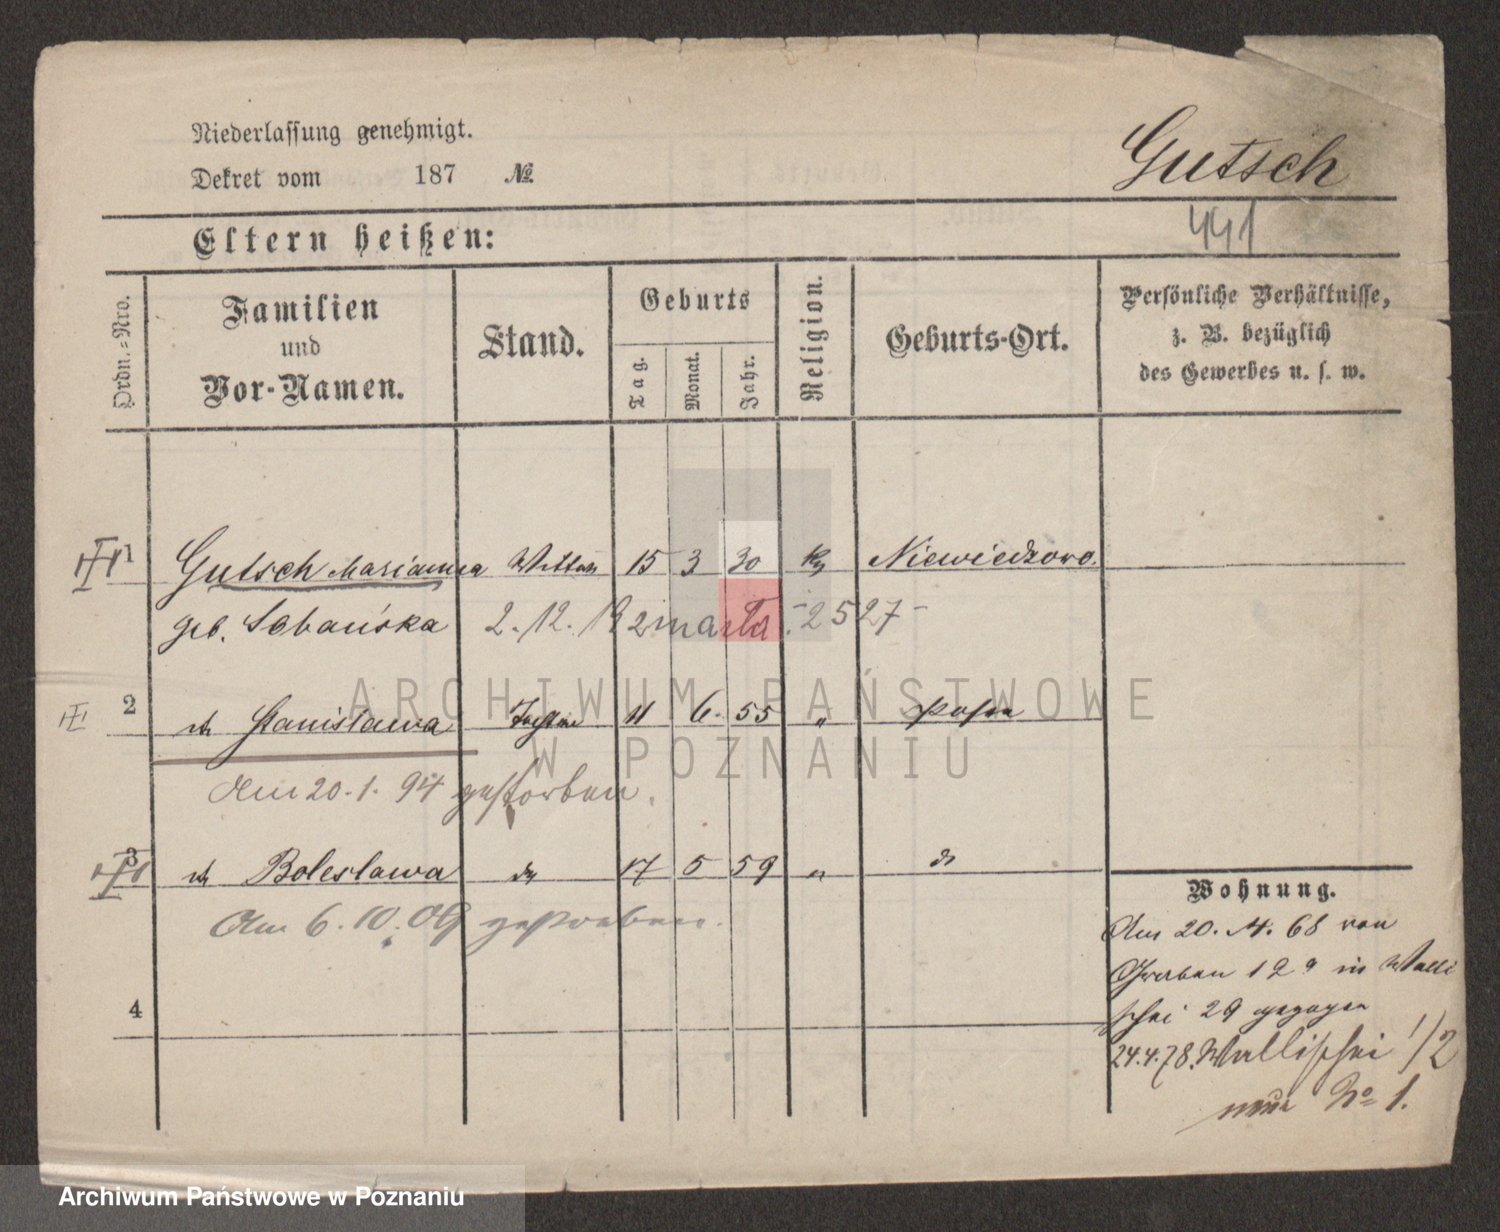 Niederlassung genehmigt.
Dekret vom 187 №
Gutsch
441
Eltern heißen:
Ordn.-Nro.
Familien
und
Vor-Namen.
Stand.
Geburts
Tag.
Monat.
Jahr.
Religion.
Geburts-Ort.
Persönliche Verhältnisse,
z. B. bezüglich
des Gewerbes u. s. w.
1 Gutsch Marianna 15 3 30 Niewiedzowo.
geb. Sobańska 2.12. zmarła -2527-
2 Stanisława Tochter 11 6. 55 " Posen
Am 20.1.94 gestorben.
3 Bolesława do 17 5 59 " do
Am 6.10.09 gestorben.
4
Wohnung.
Am 20.4.68 von
Graben 12 in Walli
schei 29 gezogen
24.4.78. Wallischei 1/2
neue No 1.
ARCHIWUM PAŃSTWOWE
W POZNANIU
Archiwum Państwowe w Poznaniu